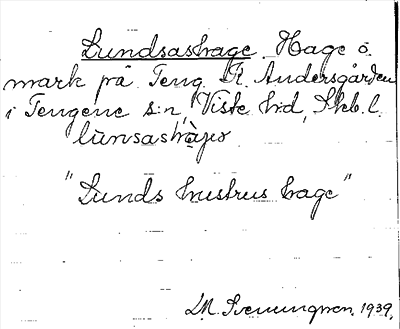 Lundsashage. Hage o.
mark på Teng. R. Andersgården
i Tengene s:n, Viste hd, Skb. l.
"Lunds hustrus hage"
M. Svenungson. 1939.